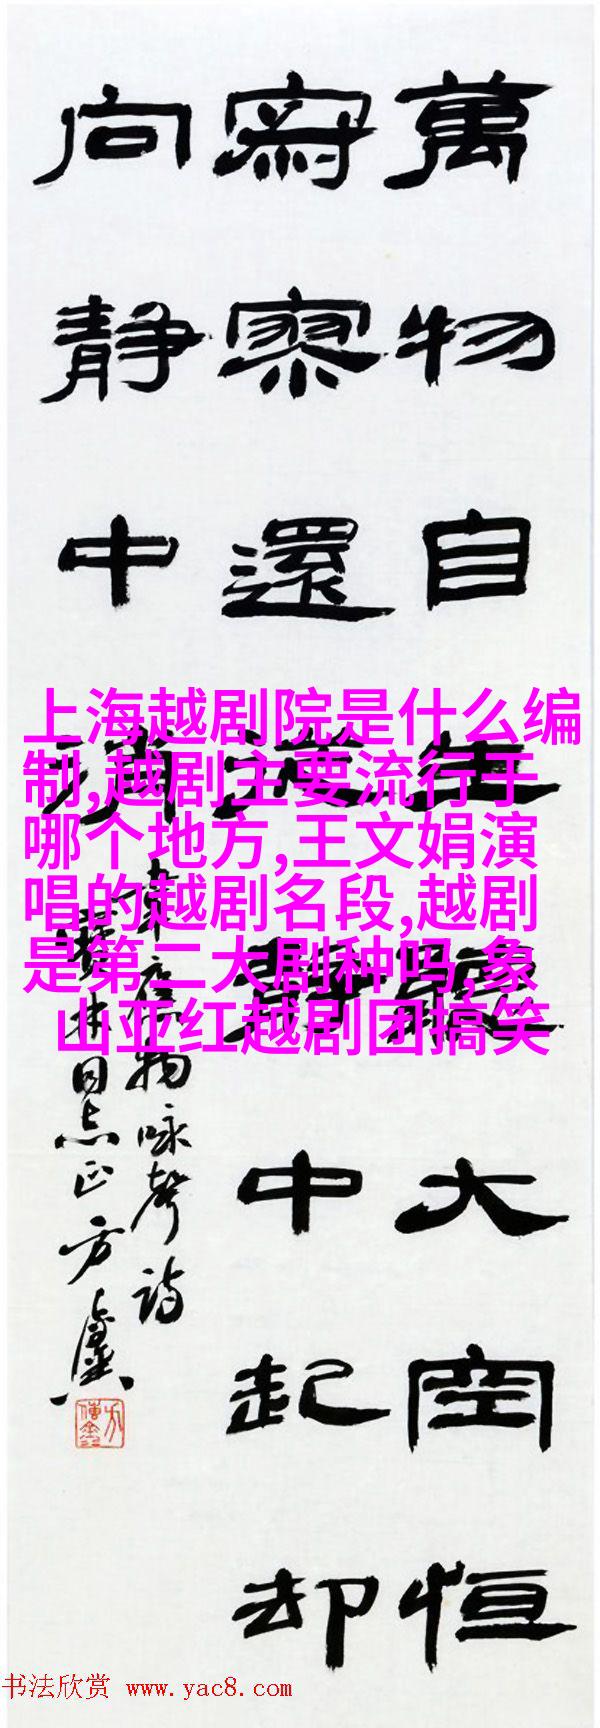 萬物自生聽大空恒
寂寥還從静中起却
向静中消
韋應物咏聲詩
林同志正方
上海越剧院是什么编
制,越剧主要流行于
哪个地方,王文娟演
唱的越剧名段,越剧
是第二大剧种吗,象
山亚红越剧团搞笑
书法欣赏 www.yac8.com